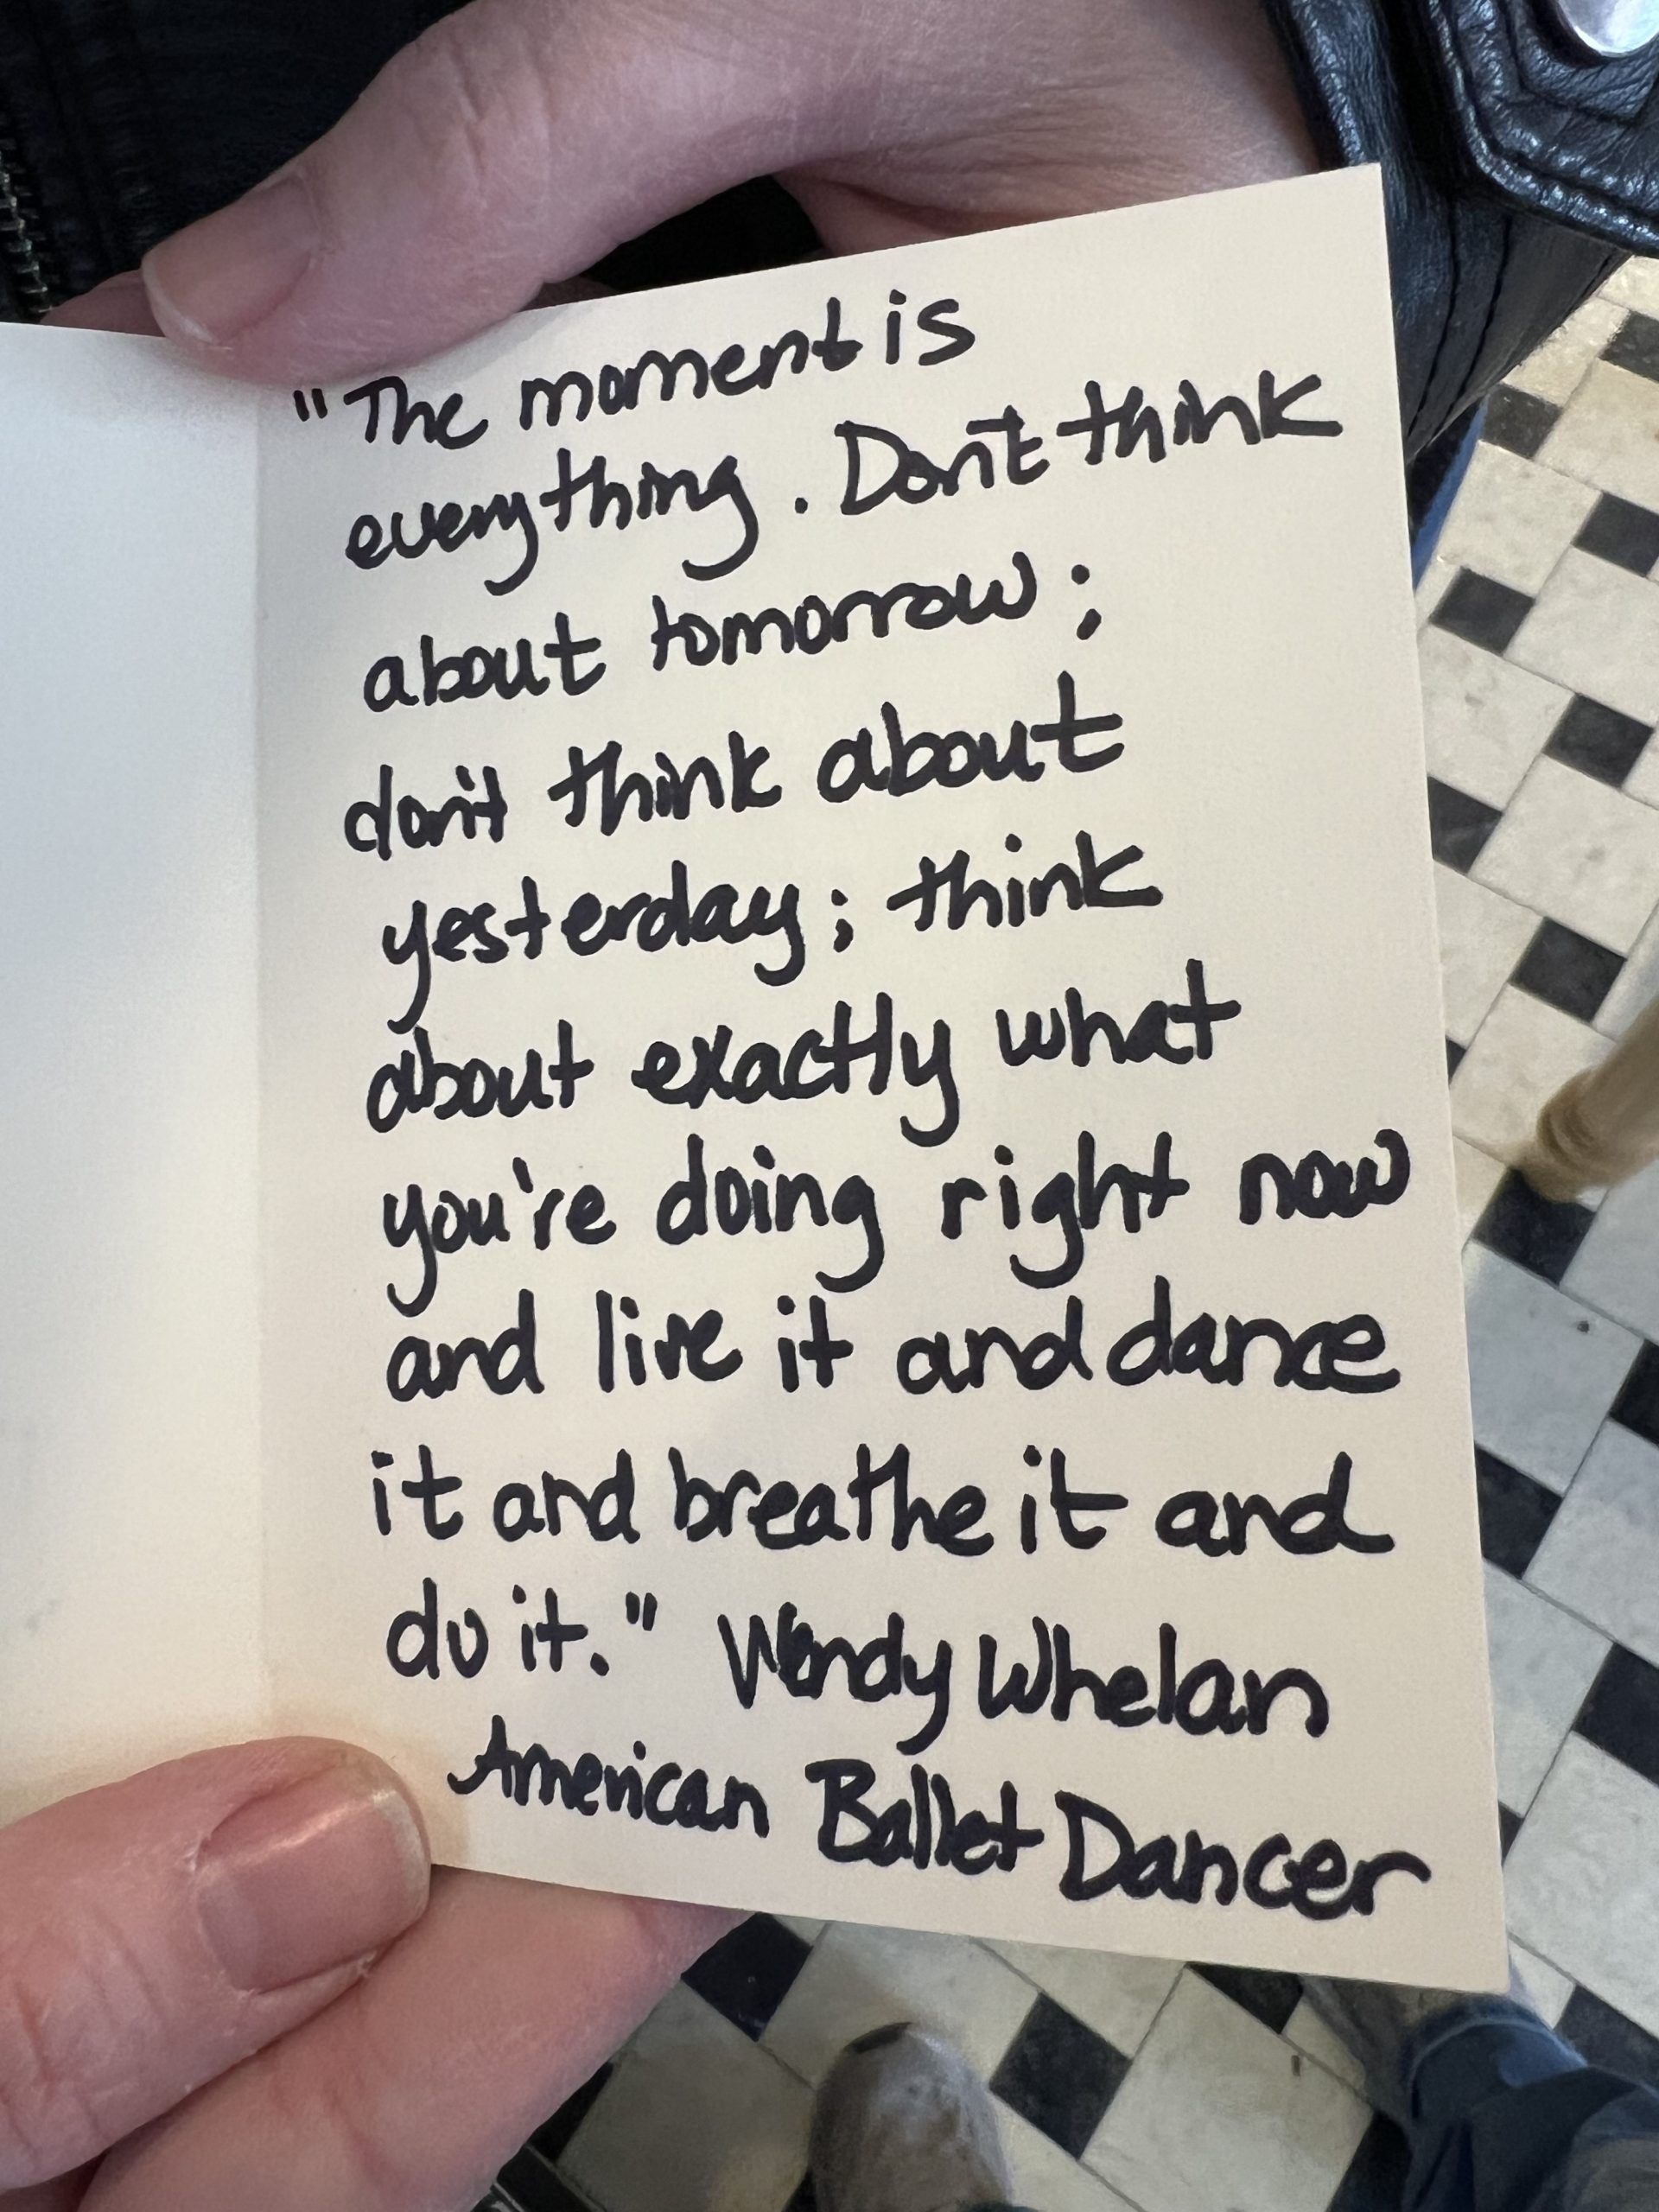 "The moment is
everything. Don't think
about tomorrow;
don't think about
yesterday; think
about exactly what
you're doing right now
and live it and dance
it and breathe it and
do it." Wendy Whelan
American Ballet Dancer